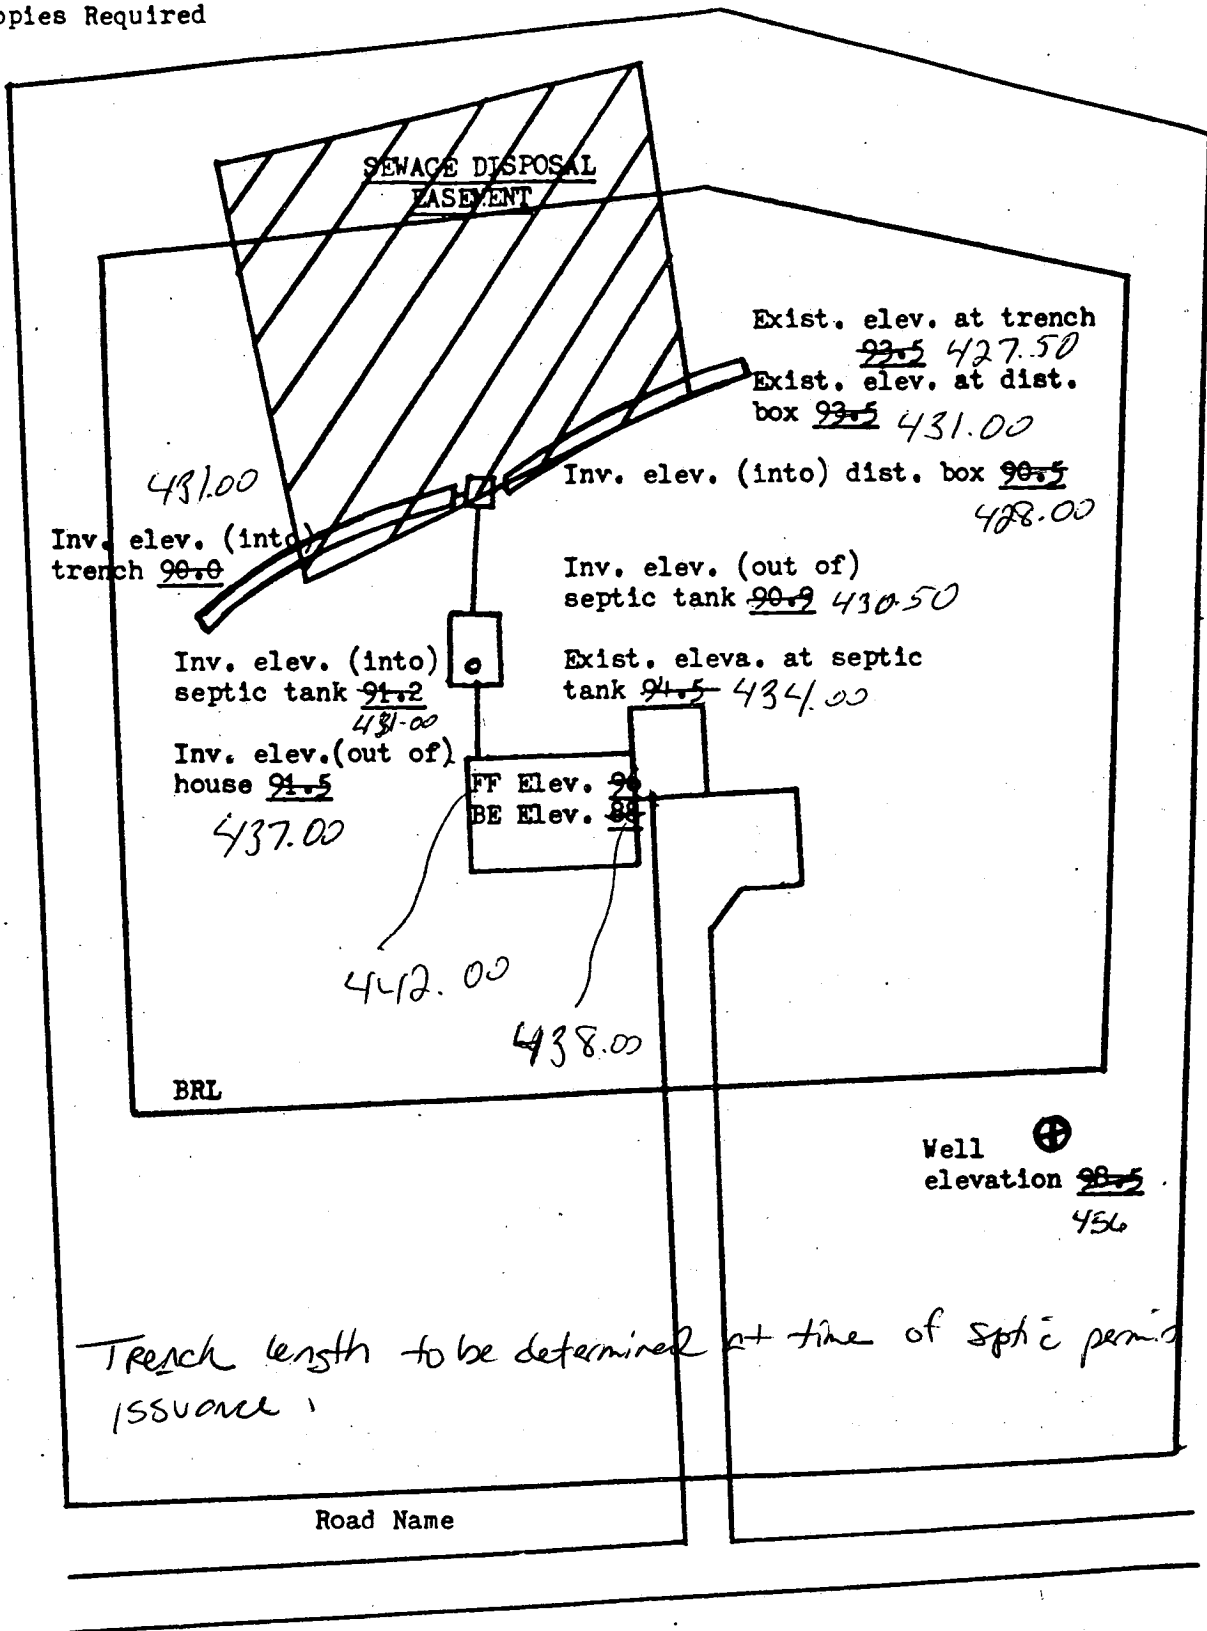 opies Required
SEWAGE DISPOSAL
EASEMENT
Exist. elev. at trench
93.5 427.50
Exist. elev. at dist.
box 93.5 431.00
431.00
Inv. elev. (into) dist. box 90.5
428.00
Inv. elev. (into)
trench 90.0
Inv. elev. (out of)
septic tank 90.9 430.50
Inv. elev. (into)
septic tank 91.2
431.00
Exist. eleva. at septic
tank 94.5 434.00
Inv. elev.(out of)
house 91.5
437.00
FF Elev. 96
BE Elev. 88
442.00
438.00
BRL
Well
elevation 98.5
456
Trench length to be determined at time of sptic permi
issuance.
Road Name